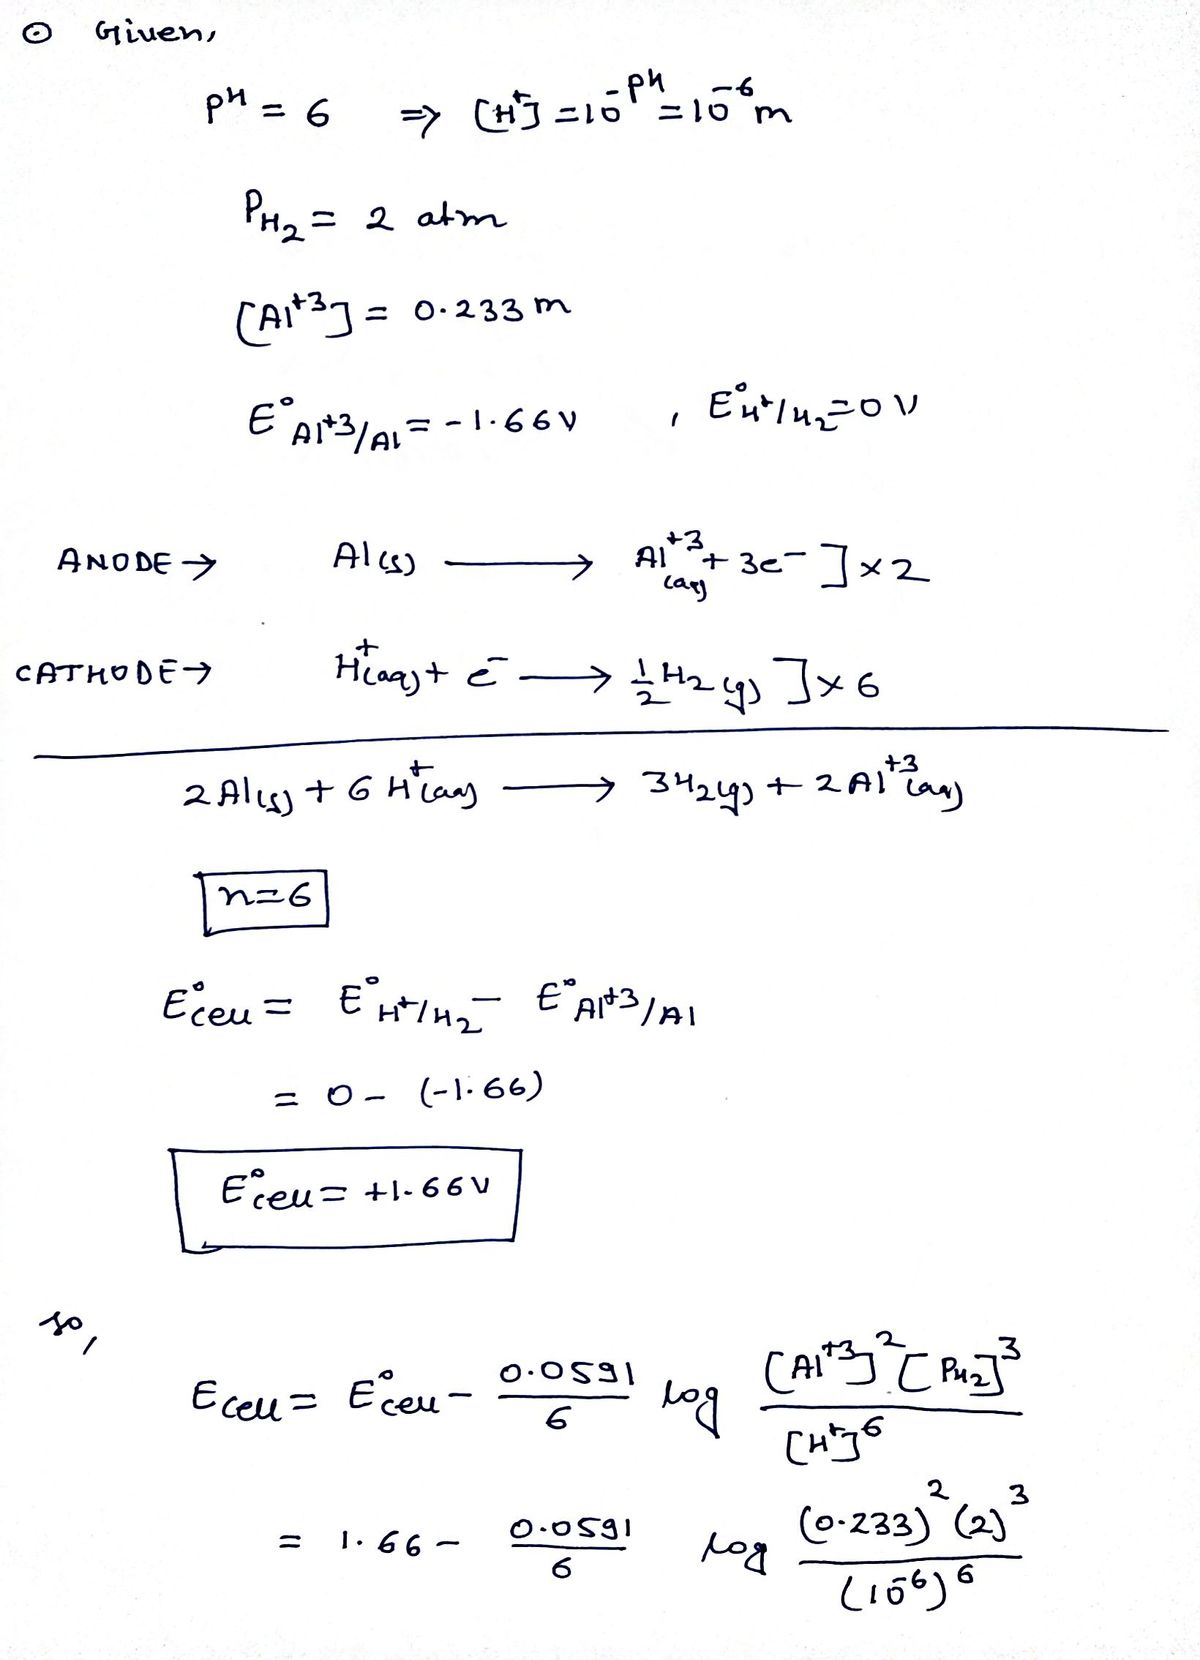 ⊙ Given,
pH = 6 ⇒ [H⁺] = 10^-pH = 10^-6 m
P_H₂ = 2 atm
[Al⁺³] = 0.233 m
E° Al⁺³/Al = -1.66 V , E° H⁺/H₂ = 0 V
ANODE → Al(s) ⟶ Al⁺³(aq) + 3e⁻ ] × 2
CATHODE → H⁺(aq) + e⁻ ⟶ ½ H₂(g) ] × 6
2Al(s) + 6H⁺(aq) ⟶ 3H₂(g) + 2Al⁺³(aq)
n = 6
E°cell = E° H⁺/H₂ - E° Al⁺³/Al
= 0 - (-1.66)
E°cell = +1.66 V
so,
Ecell = E°cell - 0.0591/6 log [Al⁺³]² [P_H₂]³ / [H⁺]⁶
= 1.66 - 0.0591/6 log (0.233)² (2)³ / (10⁻⁶)⁶